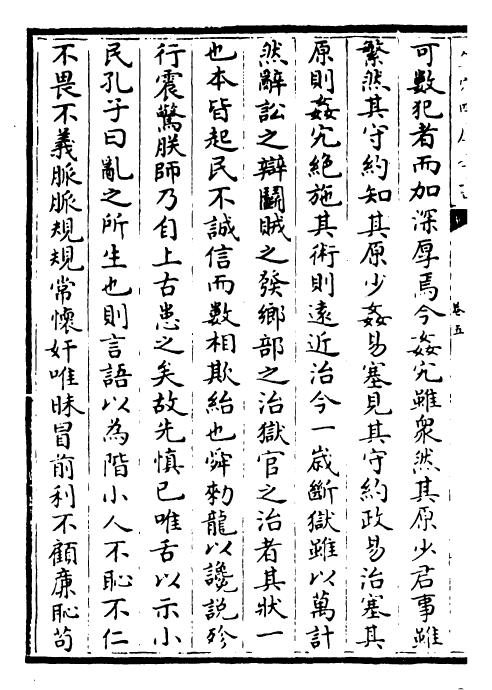 卷五
可數犯者而加深厚焉今姦宄雖衆然其原少君事雖
繁然其守約知其原少姦易塞見其守約政易治塞其
原則姦宄絶施其術則遠近治今一嵗斷獄雖以萬計
然辭訟之辯鬭賊之發鄉部之治獄官之治者其狀一
也本皆起民不誠信而數相欺紿也舜勑龍以讒説殄
行震驚朕師乃自上古患之矣故先慎己唯舌以示小
民孔子曰亂之所生也則言語以為階小人不恥不仁
不畏不義脈脈規規常懷奸唯昧冒前利不顧亷恥茍